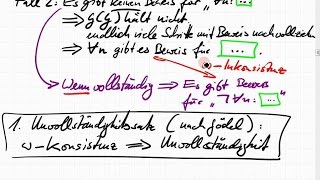 Fall 2: Es gibt keinen Beweis für „∀n: ...
⇒ g(G) hält nicht
endlich viele Schritte mit Beweis nachvollziehen
⇒ ∀n gibt es Beweis für ...
ω-Inkonsistenz
Wenn vollständig ⇒ Es gibt Beweis
für „¬∀n: ..."
1. Unvollständigkeitssatz (nach Gödel):
ω-Konsistenz ⇒ Unvollständigkeit